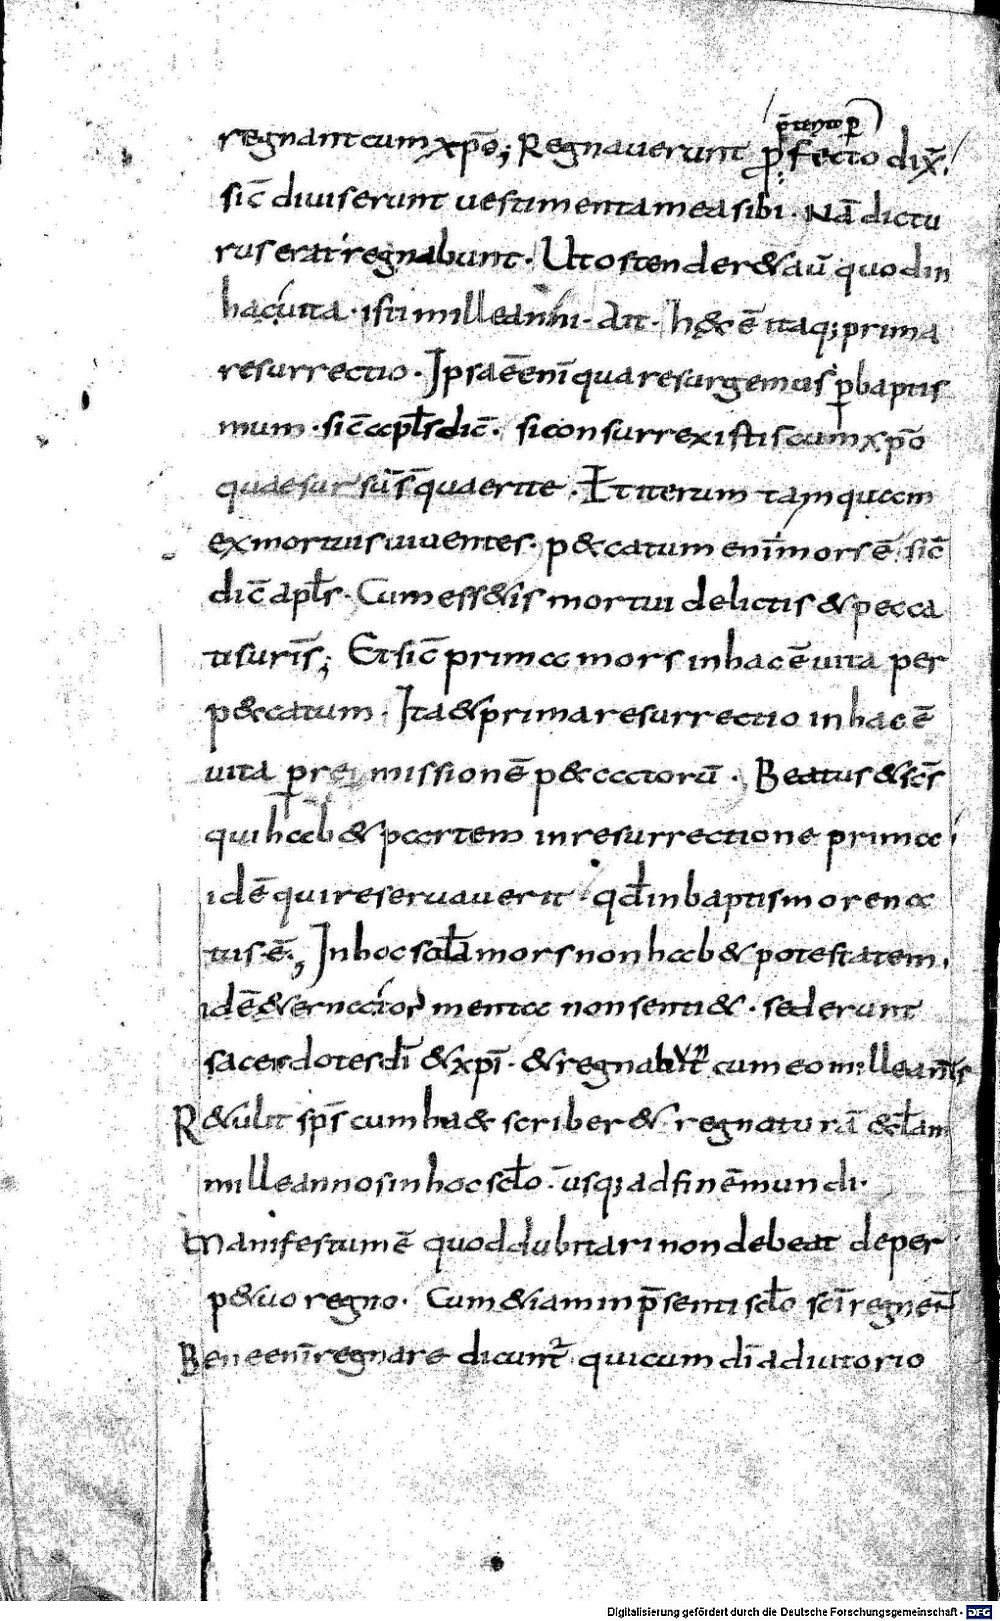 p̄terito p̄
regnant cum xp̄o; Regnauerunt p̱fecto dix̄.
sic̄ diuiserunt uestimenta mea sibi. Nā dictu
rus erat regnabunt. Ut ostender& aū quod in
hac uita. isti mille anni. Ait. hęc ē itaq; prima
resurrectio. Ipsa ē enī qua resurgemus p̱ baptis
mum. sic̄ apl̄s dic̄. si consurrexistis cum xp̄o
quae sursū s̄ quaerite. Et iterum tamquam
ex mortuis uiuentes. p&catum enī mors ē. sic̄
dic̄ apl̄s. Cum ess&is mortui delictis & pecca
tis ur̄is; Et sic̄ prima mors in hac ē uita per
p&catum. Ita & prima resurrectio in hac ē
uita p̱ remissionē p&catorū. Beatus & sc̄s
qui hab& partem in resurrectione prima
id ē qui reseruauerit qd̄ in baptismo rena
tus ē., In hoc scl̄a mors non hab& potestatem.
id ē &erna tormenta non senti&. sed erunt
sacerdotes dī & xp̄ī. & regnabunt cum eo mille annīs
R&ulit sp̄s cum haec scriber& regnaturā eccl̄am
mille annos in hoc scl̄o. usq; ad finē mundi.
Manifestum ē quod dubitari non debeat de per
p&uo regno. Cum &iam in p̄senti scl̄o scī regnent
Bene enī regnare dicunt̄ qui cum dī adiutorio
Digitalisierung gefördert durch die Deutsche Forschungsgemeinschaft - DFG